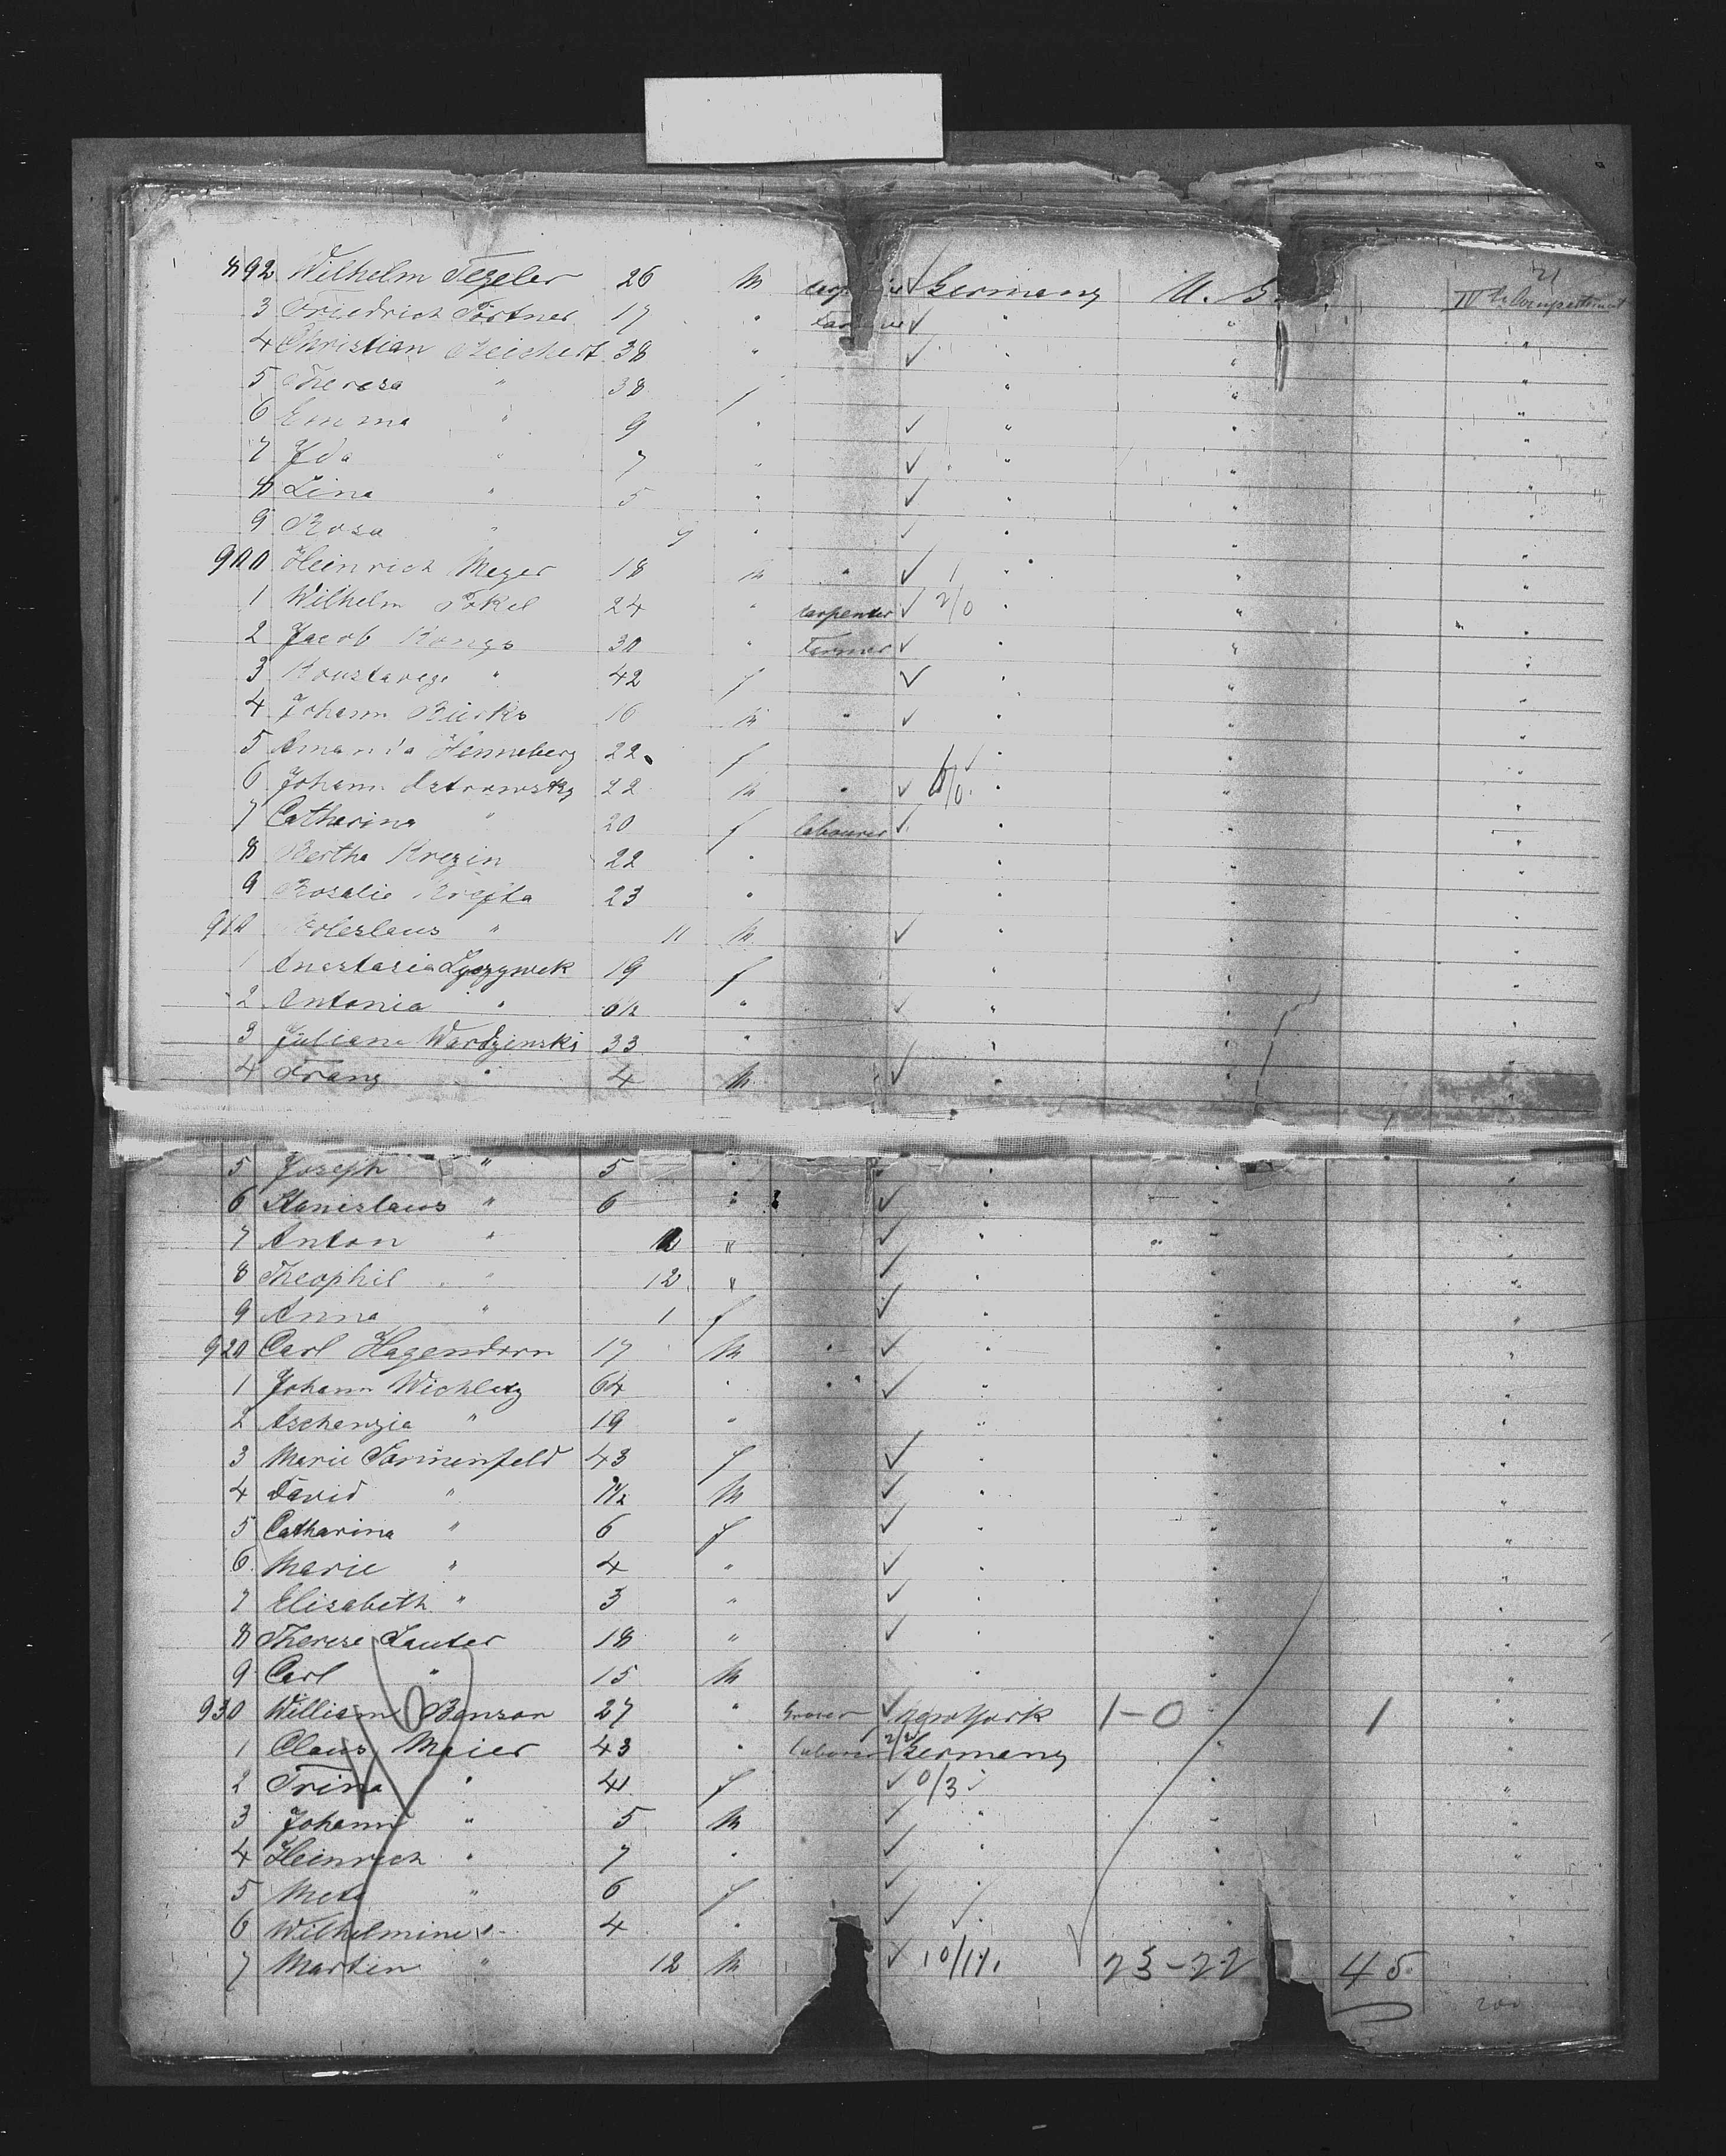 21
892 Wilhelm Tegeler 26 m Germany U. S. IVth Compartment
3 Friedrich Portner 17 " Farmer "
4 Christian Reichert 38 "
5 Theresa " 38 f "
6 Emma " 9 " "
7 Ida " 7 " "
8 Lina " 5 " "
9 Rosa " 9 " "
900 Heinrich Meyer 18 m " "
1 Wilhelm Pokel 24 " carpenter 2/0 "
2 Jacob 30 " Farmer "
3 " 42 f "
4 Johann 16 m " "
5 Amanda Henneberg 22 f "
6 Johann Ostrowsky 22 m " "
7 Catharina " 20 f labourer "
8 Bertha Krezin 22 " "
9 Rosalie Krefta 23 " "
910 Boleslaus " 11 m "
1 Anastasia 19 f "
2 Antonia " " "
3 Juliana Wardzinski 33 " "
4 Franz " 4 m "
5 Joseph " 5 " "
6 Stanislaus " 6 " "
7 Anton " " "
8 Theophil " 12 " "
9 Anna " 1 f "
920 Carl Hagendorn 17 m " "
1 Johann Wichletz 64 " " "
2 Aschanzia " 19 " "
3 Marie Sonnenfeld 43 f "
4 David " m "
5 Catharina " 6 f "
6 Marie " 4 " "
7 Elisabeth " 3 " "
8 Therese Lauter 18 " "
9 Carl " 15 m "
930 William Benson 27 " Grocer New York 1-0 1
1 Claus Maier 43 " labourer Germany
2 Trina " 41 f 0/3 "
3 Johann " 5 m "
4 Heinrich " 7 " "
5 Meta " 6 f "
6 Wilhelmine " 4 " "
7 Martin " 12 m 10/14 23-22 45
200